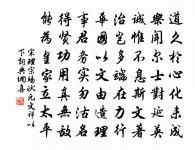 道久於心化未成
樂聞爾士對延英
誠惟不息斯文著
治豈多端在力行
華國以文由造理
事君務實勿沽名
得賢功用真無敵
能為皇家立太平
宋理宗賜狀元文祥以
下詞典網書